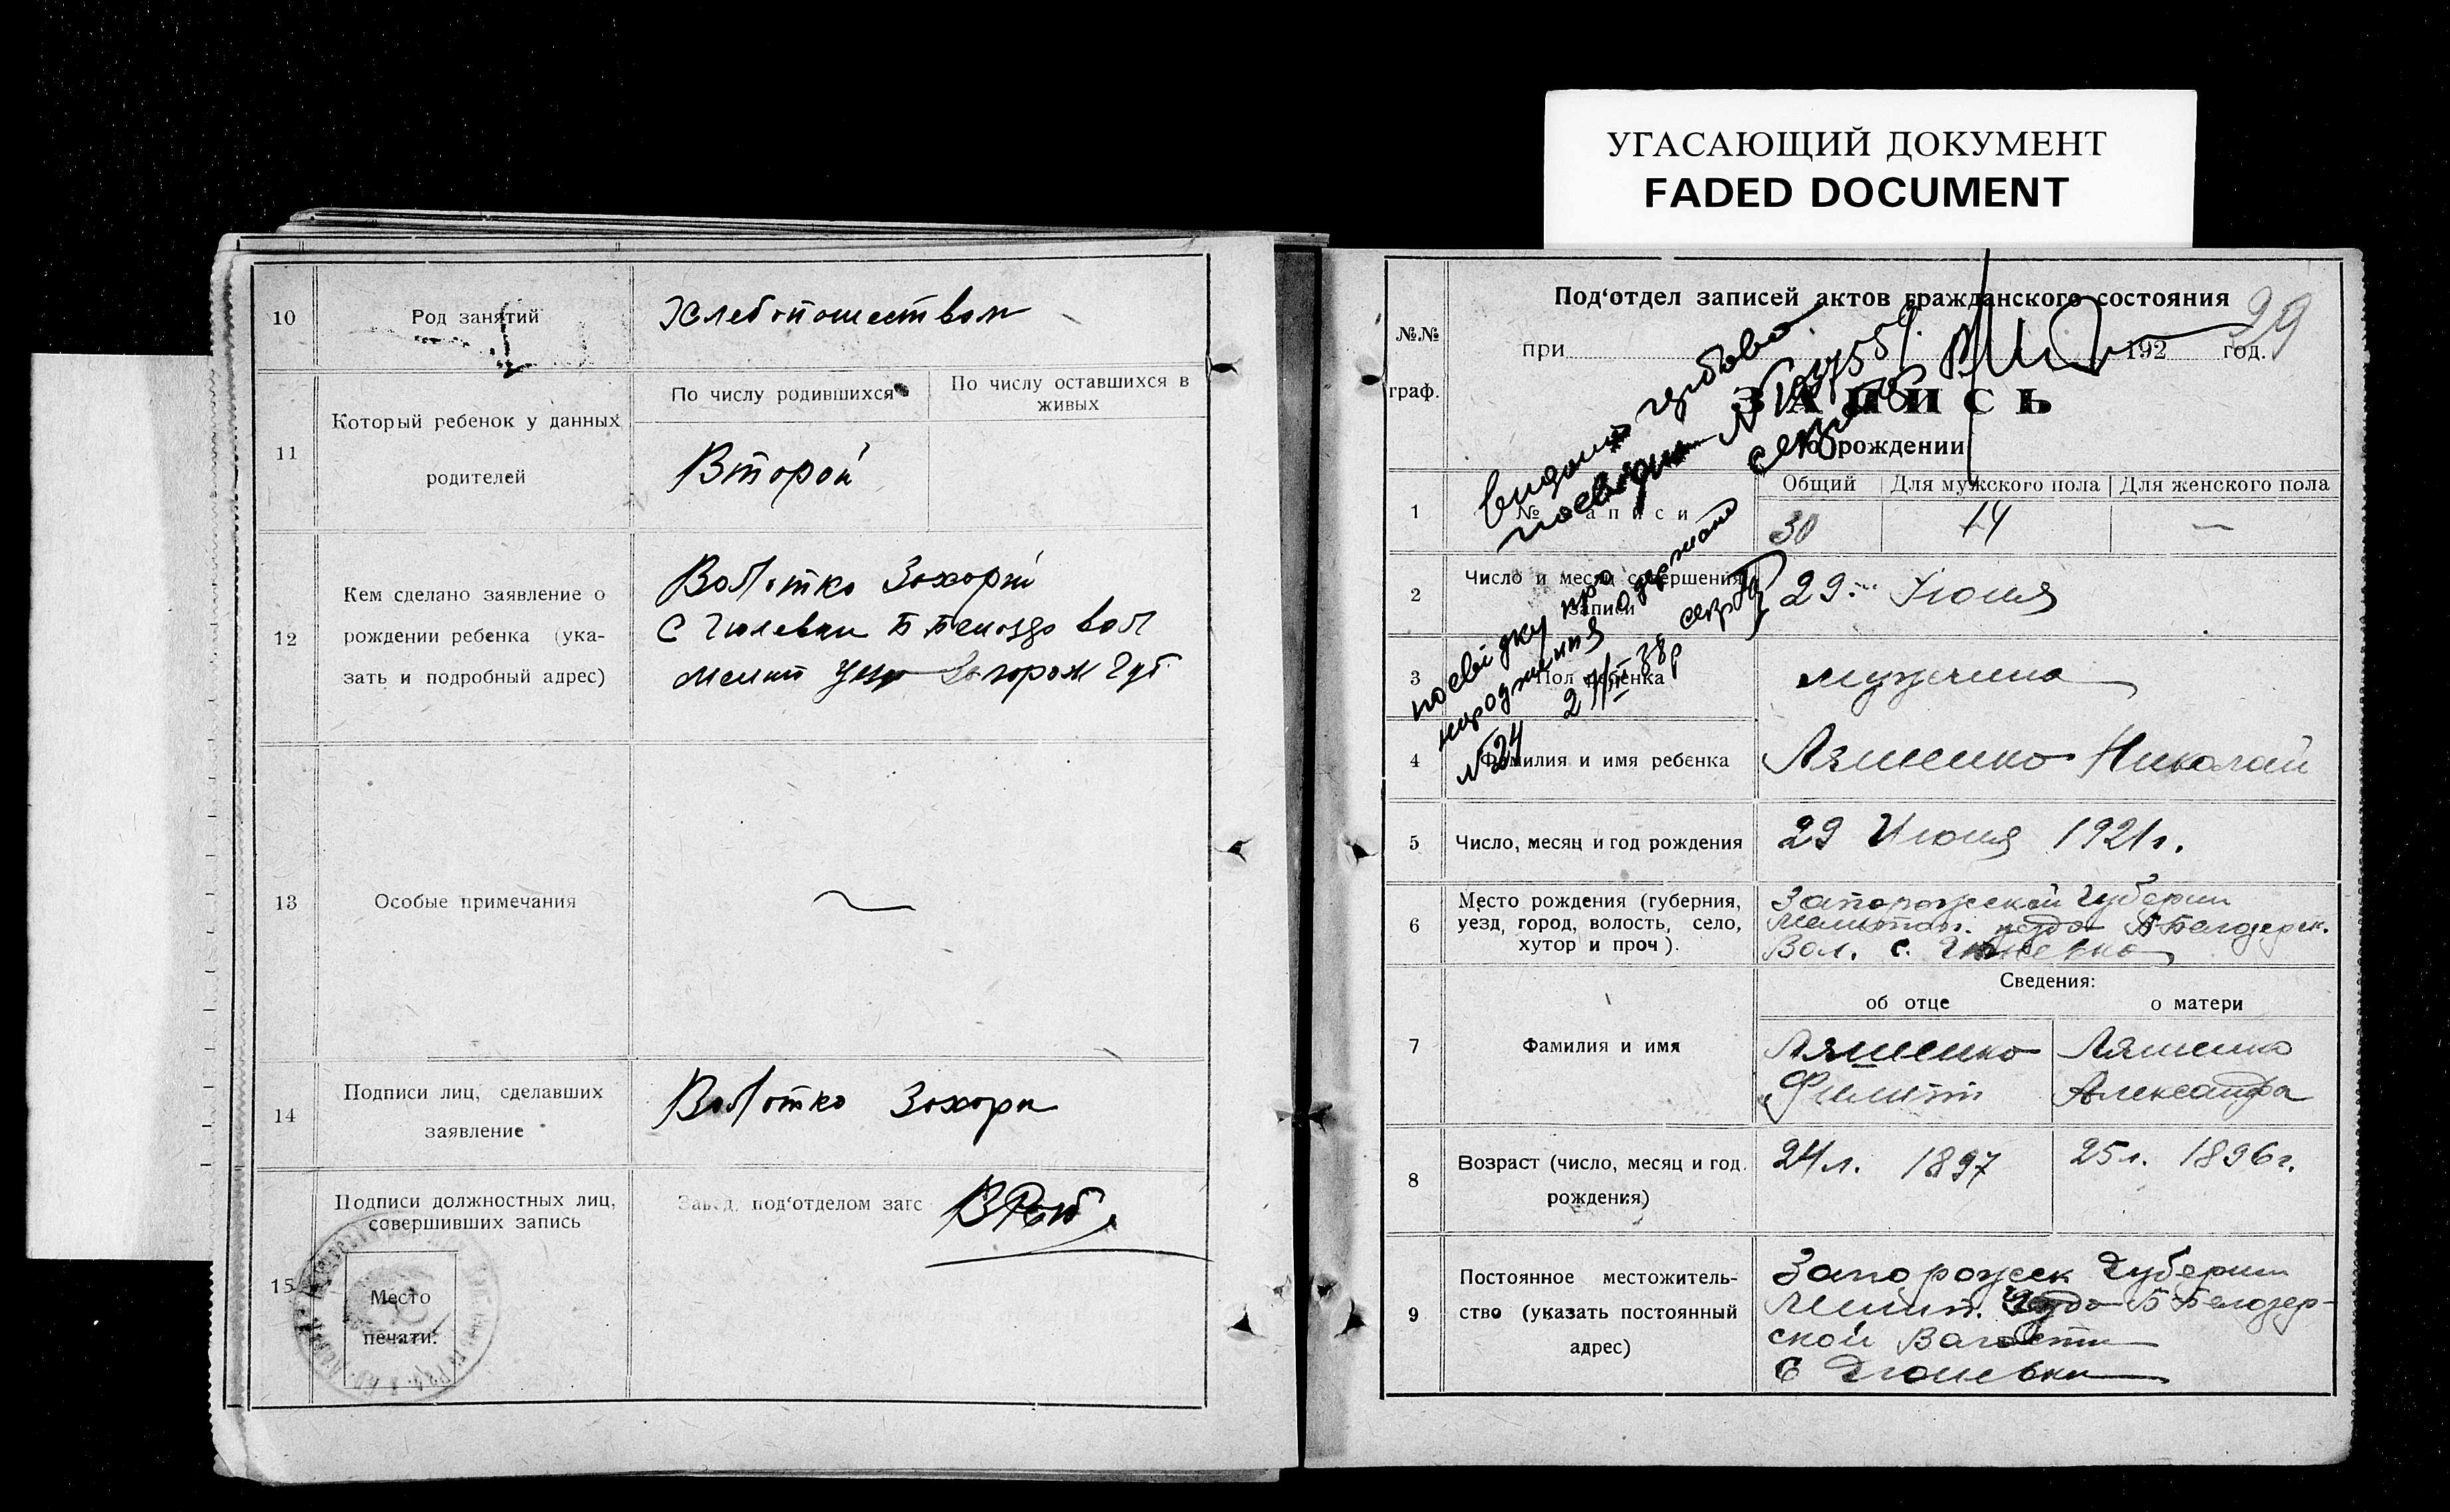 УГАСАЮЩИЙ ДОКУМЕНТ
FADED DOCUMENT
10
Род занятий
Хлебопашеством
11
Который ребенок у данных
родителей
По числу родившихся
По числу оставшихся в
живых
Второй
12
Кем сделано заявление о
рождении ребенка (ука-
зать и подробный адрес)
Захарий
С Гюневки Б Белозер вол
Мелит Уез Запорож Губ
13
Особые примечания
14
Подписи лиц, сделавших
заявление
15
Подписи должностных лиц,
совершивших запись
Место
печати.
Завед. под‘отделом загс
№№
граф.
Под‘отдел записей актов гражданского состояния
29
при 192 год.
ЗАПИСЬ
о рождении
1
№ записи
Общий
Для мужского пола
Для женского пола
30
14
—
2
Число и месяц совершения
записи
29 Июня
3
Пол ребенка
мужчина
4
Фамилия и имя ребенка
Ляшенко Николай
5
Число, месяц и год рождения
29 Июня 1921г.
6
Место рождения (губерния,
уезд, город, волость, село,
хутор и проч).
Запорожской Губернии
Мелитоп. уезда Б Белозерск.
Вол. с. Гюневка
Сведения:
об отце
о матери
7
Фамилия и имя
Ляшенко
Филипп
Ляшенко
Александра
8
Возраст (число, месяц и год
рождения)
24л. 1897
25л. 1896г.
9
Постоянное местожитель-
ство (указать постоянный
адрес)
Запорожск Губернии
Мелит. Уезда Б Белозер-
ской Волости
С Гюневки
посвідку про
народження одержано
№24 27/II 38р